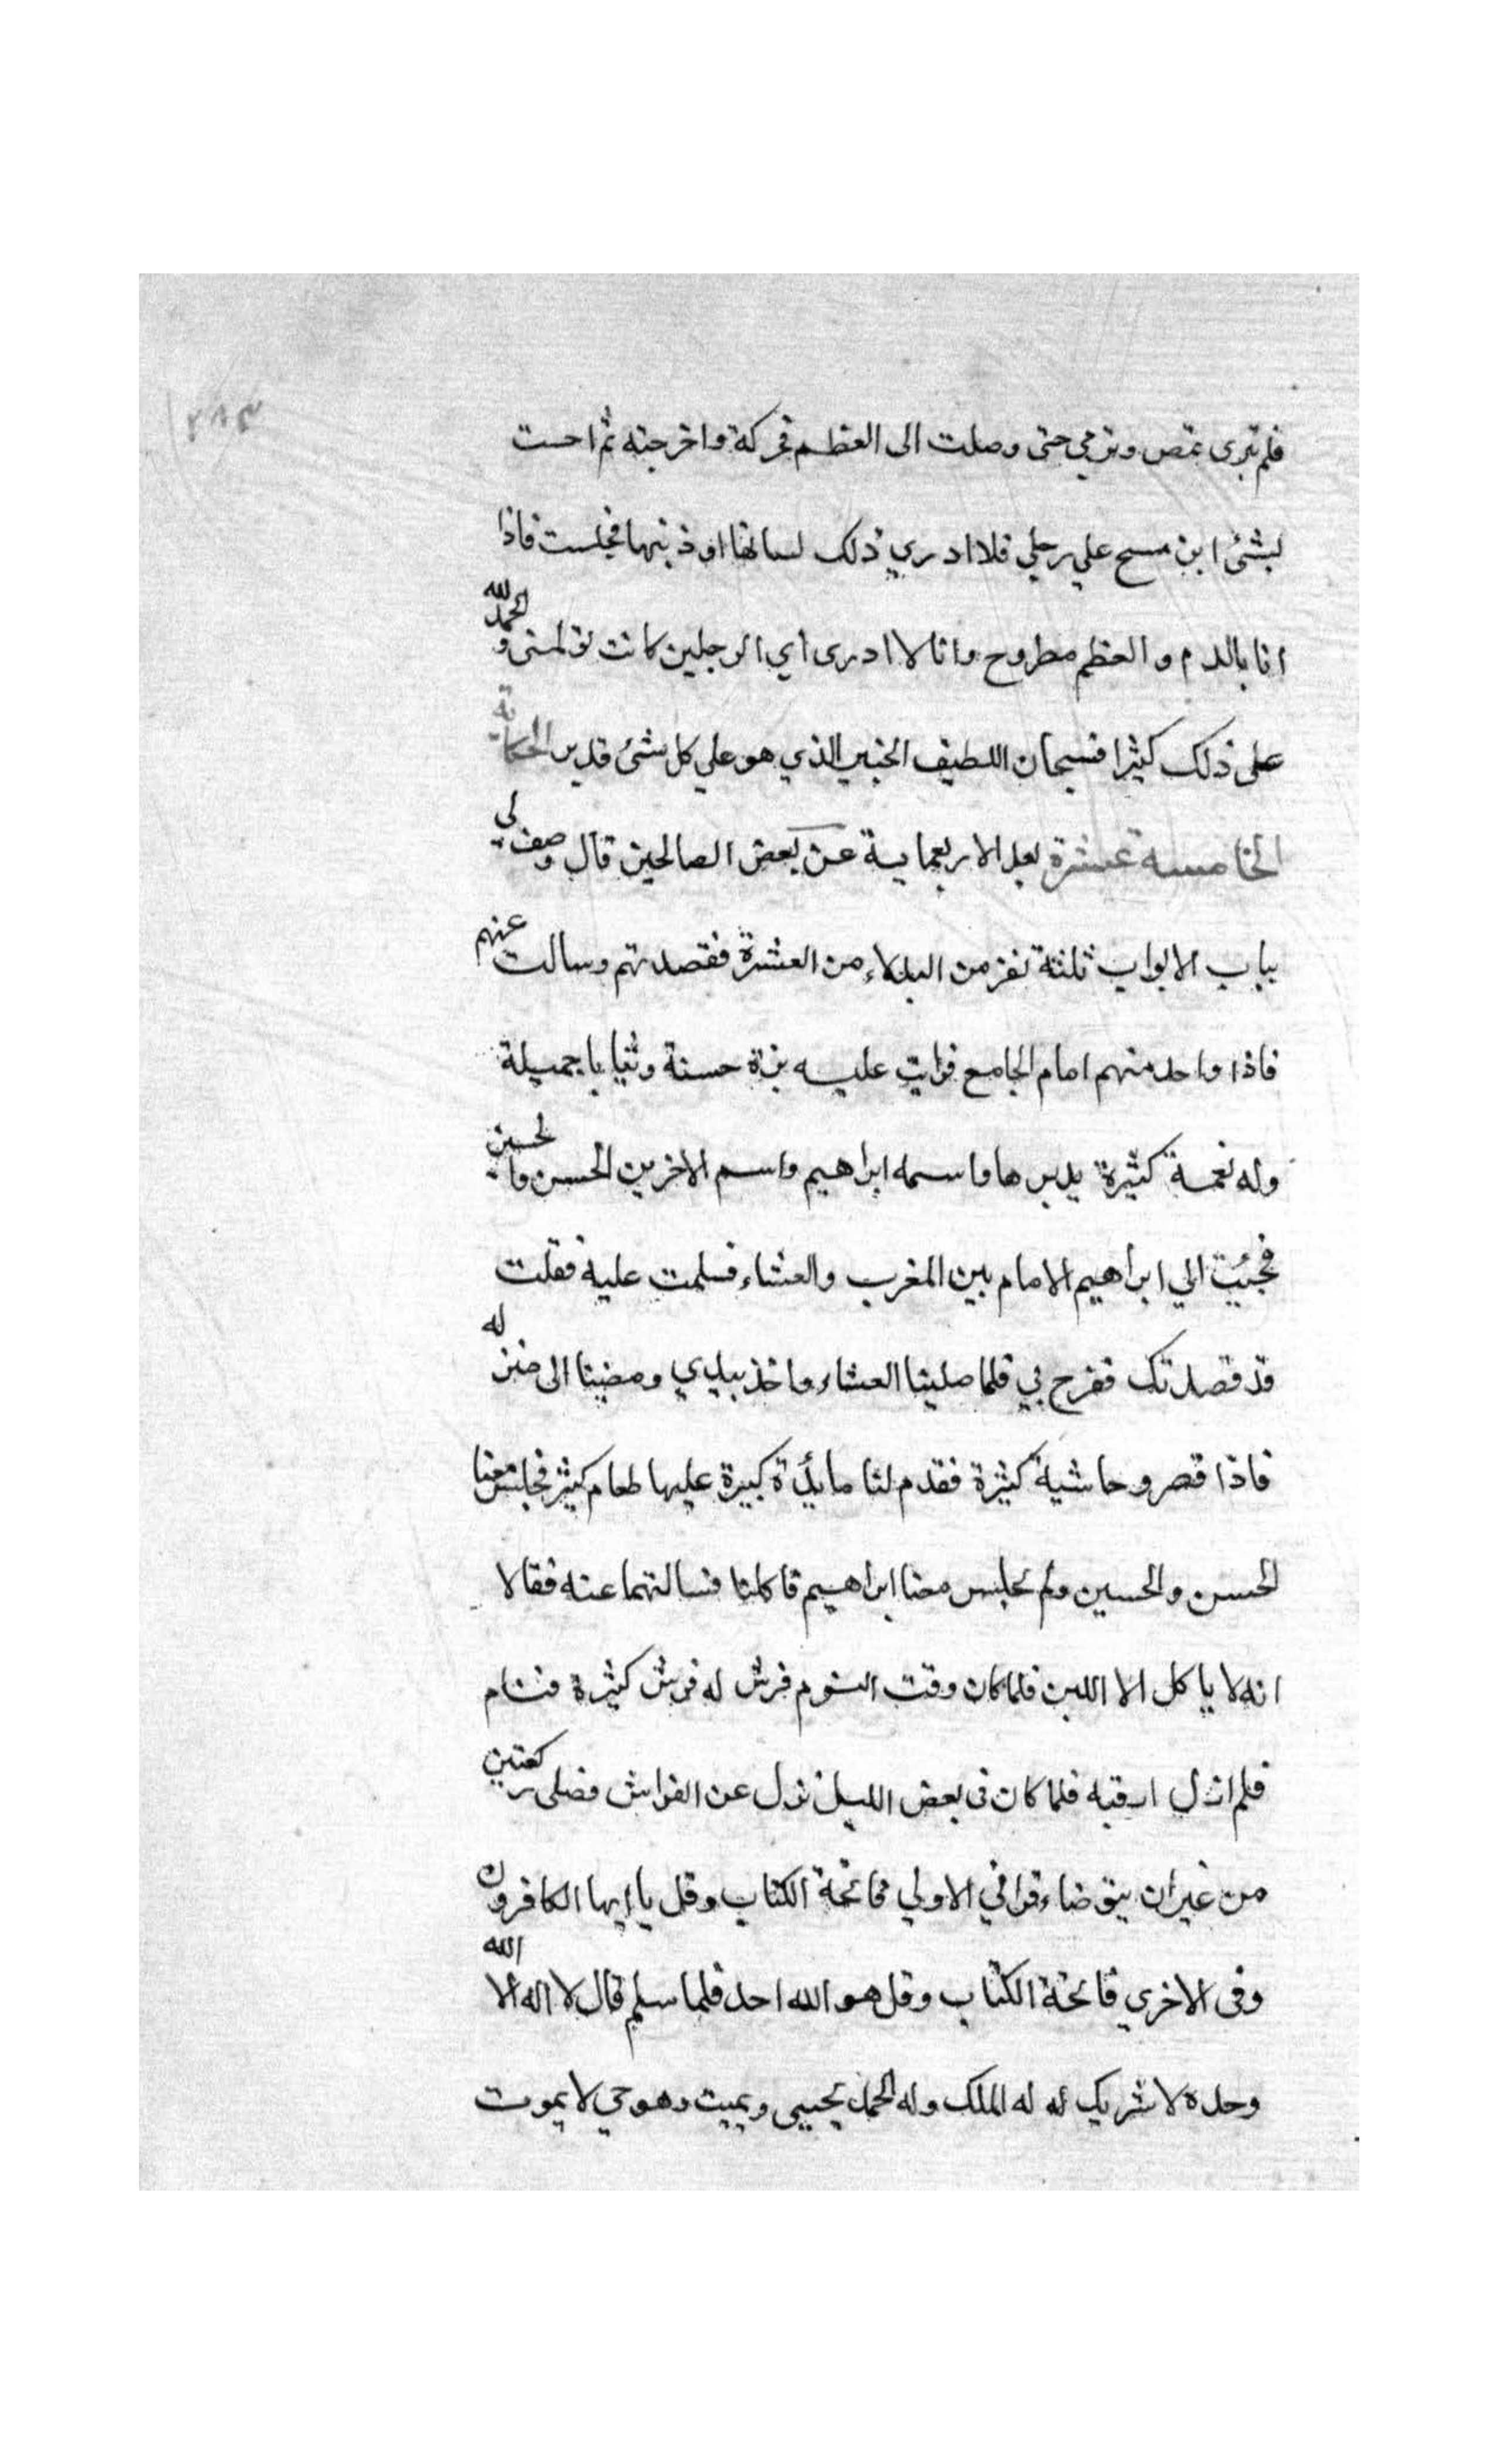 ٢٨٣
فلم تبرى تمص وترمي حتى وصلت الى العظم فحركة واخرجته ثم احست
بشئ ابن مسح علي رجلي فلا ادري ذلك لسانها او ذنبها فجلست فاذا
انا بالدم والعظم مطروح وانا لا ادرى اي الرجلين كانت تولمنى والحمد لله
على ذلك كثيرا فسبحان اللطيف الخبير الذي هو علي كل شئ قدير الحكاية
الخامسة عشرة بعد الاربعماية عن بعض الصالحين قال وصف لي
بباب الابواب ثلثة نفر من البدلاء من العشرة فقصدتهم وسالت عنهم
فاذا واحد منهم امام الجامع فرايت عليه بزة حسنة وثيابا جميلة
وله نعمة كثيرة يدبرها واسمه ابراهيم واسم الاخرين الحسن والحسين
فجئت الي ابراهيم الامام بين المغرب والعشاء فسلمت عليه فقلت
قد قصدتك ففرح بي فلما صلينا العشاء واخذ بيدي ومضينا الى منزله
فاذا قصر وحاشية كثيرة فقدم لنا مايدة كبيرة عليها طعام كثير فجلس معنا
الحسن والحسين ولم يجلس معنا ابراهيم فاكلنا فسالتهما عنه فقالا
انه لا ياكل الا اللبن فلما كان وقت النوم فرش له فرش كثيرة فنام
فلم ازل ارقبه فلما كان فى بعض الليل نزل عن الفراش فصلى ركعتين
من غير ان يتوضاء قرا في الاولي فاتحة الكتاب وقل يا ايها الكافرون
وفى الاخري فاتحة الكتاب وقل هو الله احد فلما سلم قال لا اله الا الله
وحده لا شريك له له الملك وله الحمد يحيى ويميت وهو حي لا يموت